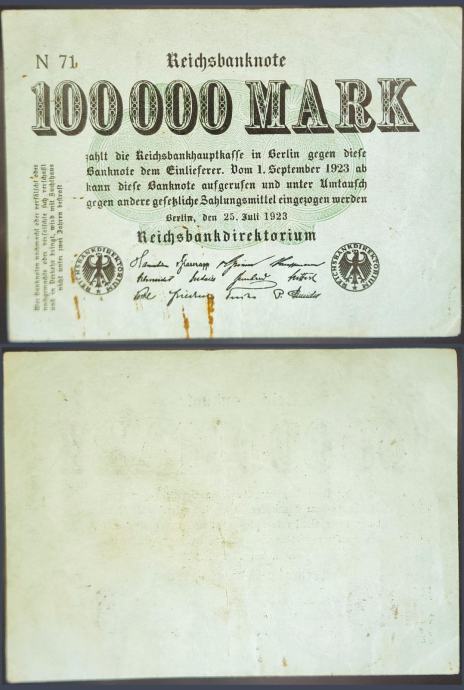 N 71
Reichsbanknote
100000 MARK
zahlt die Reichsbankhauptkasse in Berlin gegen diese
Banknote dem Einlieferer. Vom 1. September 1923 ab
kann diese Banknote aufgerufen und unter Umtausch
gegen andere gesetzliche Zahlungsmittel eingezogen werden
Berlin, den 25. Juli 1923
Reichsbankdirektorium
REICHSBANKDIREKTORIUM
REICHSBANKDIREKTORIUM
Wer Banknoten nachmacht oder verfälscht oder
nachgemachte oder verfälschte sich verschafft
und in Verkehr bringt, wird mit Zuchthaus
nicht unter zwei Jahren bestraft